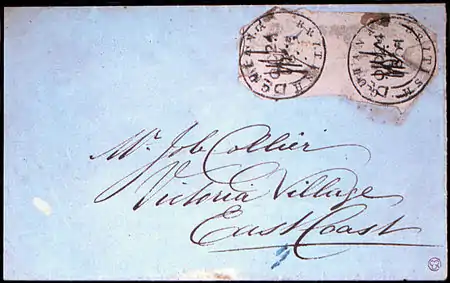 BRITISH GUIANA BRITISH GUIANA
Mr. Job Collier
Victoria Village
East Coast